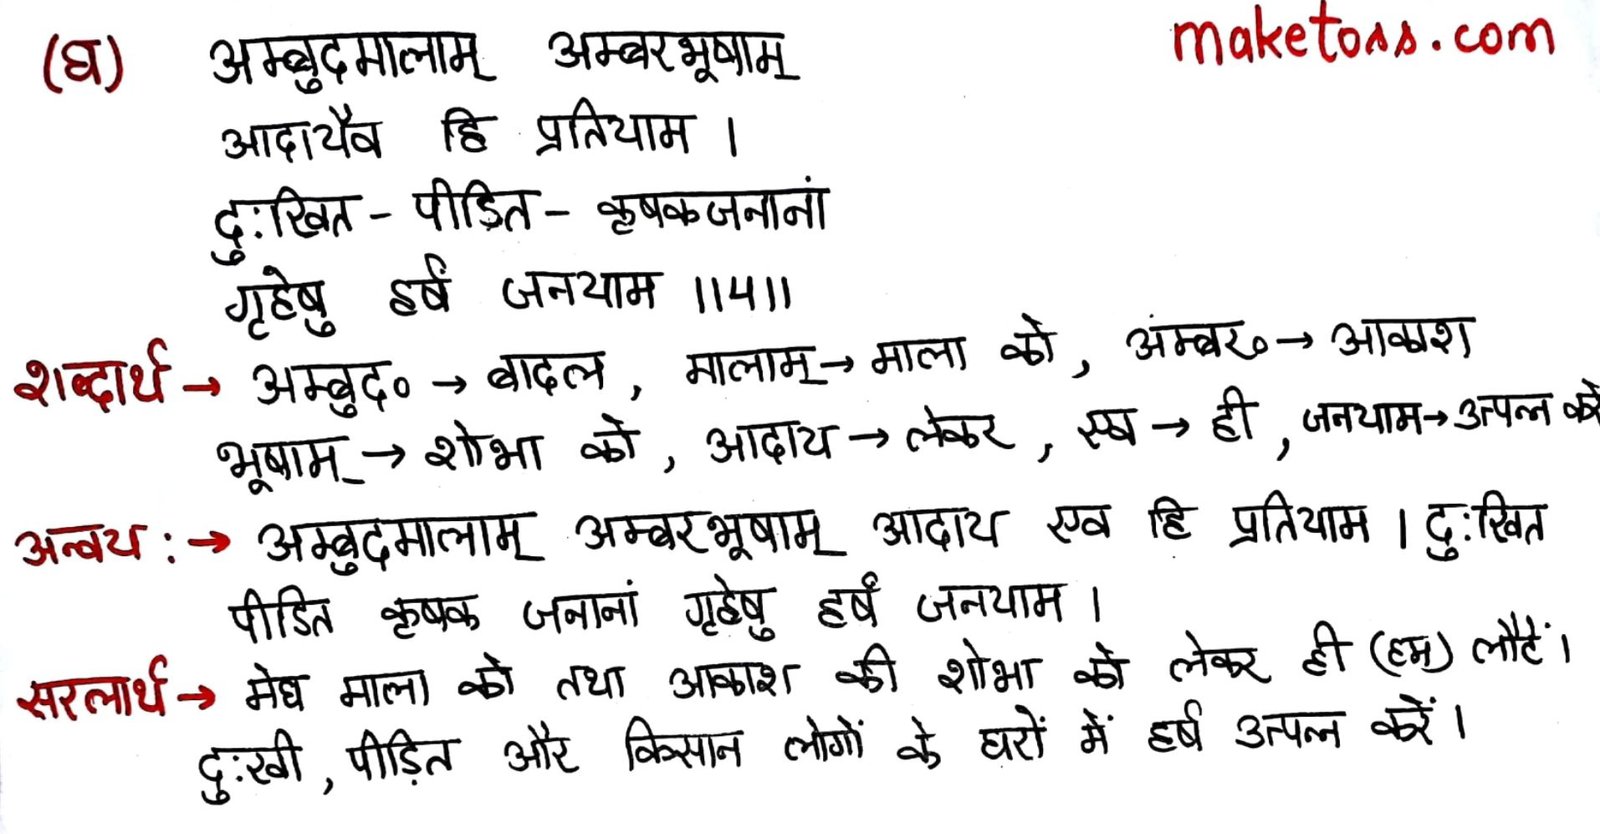 (घ) अम्बुदमालाम् अम्बरभूषाम् maketoss.com
आदायैव हि प्रतियाम ।
दुःखित - पीडित - कृषकजनानां
गृहेषु हर्षं जनयाम ||4||
शब्दार्थ → अम्बुद० → बादल , मालाम् → माला को , अंम्बर० → आकाश
भूषाम् → शोभा को , आदाय → लेकर , एव → ही , जनयाम → उत्पन्न करें
अन्वय : → अम्बुदमालाम् अम्बरभूषाम् आदाय एव हि प्रतियाम । दुःखित
पीडित कृषक जनानां गृहेषु हर्षं जनयाम ।
सरलार्थ → मेघ माला को तथा आकाश की शोभा को लेकर ही (हम) लौटें ।
दुःखी , पीड़ित और किसान लोगों के घरों में हर्ष उत्पन्न करें ।